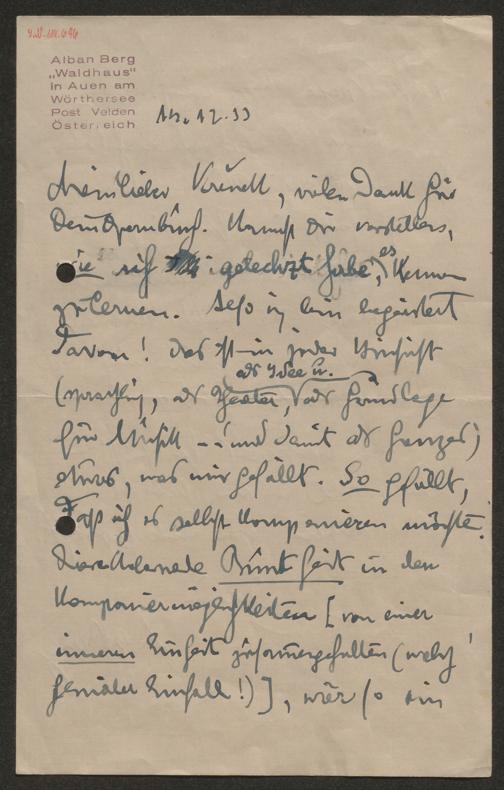 Alban Berg
„Waldhaus"
in Auen am
Wörthersee
Post Velden
Österreich
12.33
Mein lieber Křenek, vielen Dank für
Dein Opernbuch. Kannst Dir vorstellen,
wie ich gelechzt habe, es kennen
zu lernen. Also ich bin begeistert
davon! Das ist in jeder Hinsicht
(sprachlich, als Theater, als Idee u. als Grundlage
für Musik – und damit als Ganzes)
etwas, was mir gefällt. So gefällt,
daß ich es selbst komponieren möchte.
Diese Buntheit in den
Komponiermöglichkeiten [von einer
inneren Einheit zusammengehalten (welch
genialer Einfall!)], wär so ein